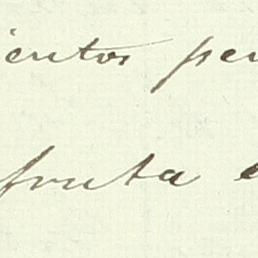 ientos per
fruta e